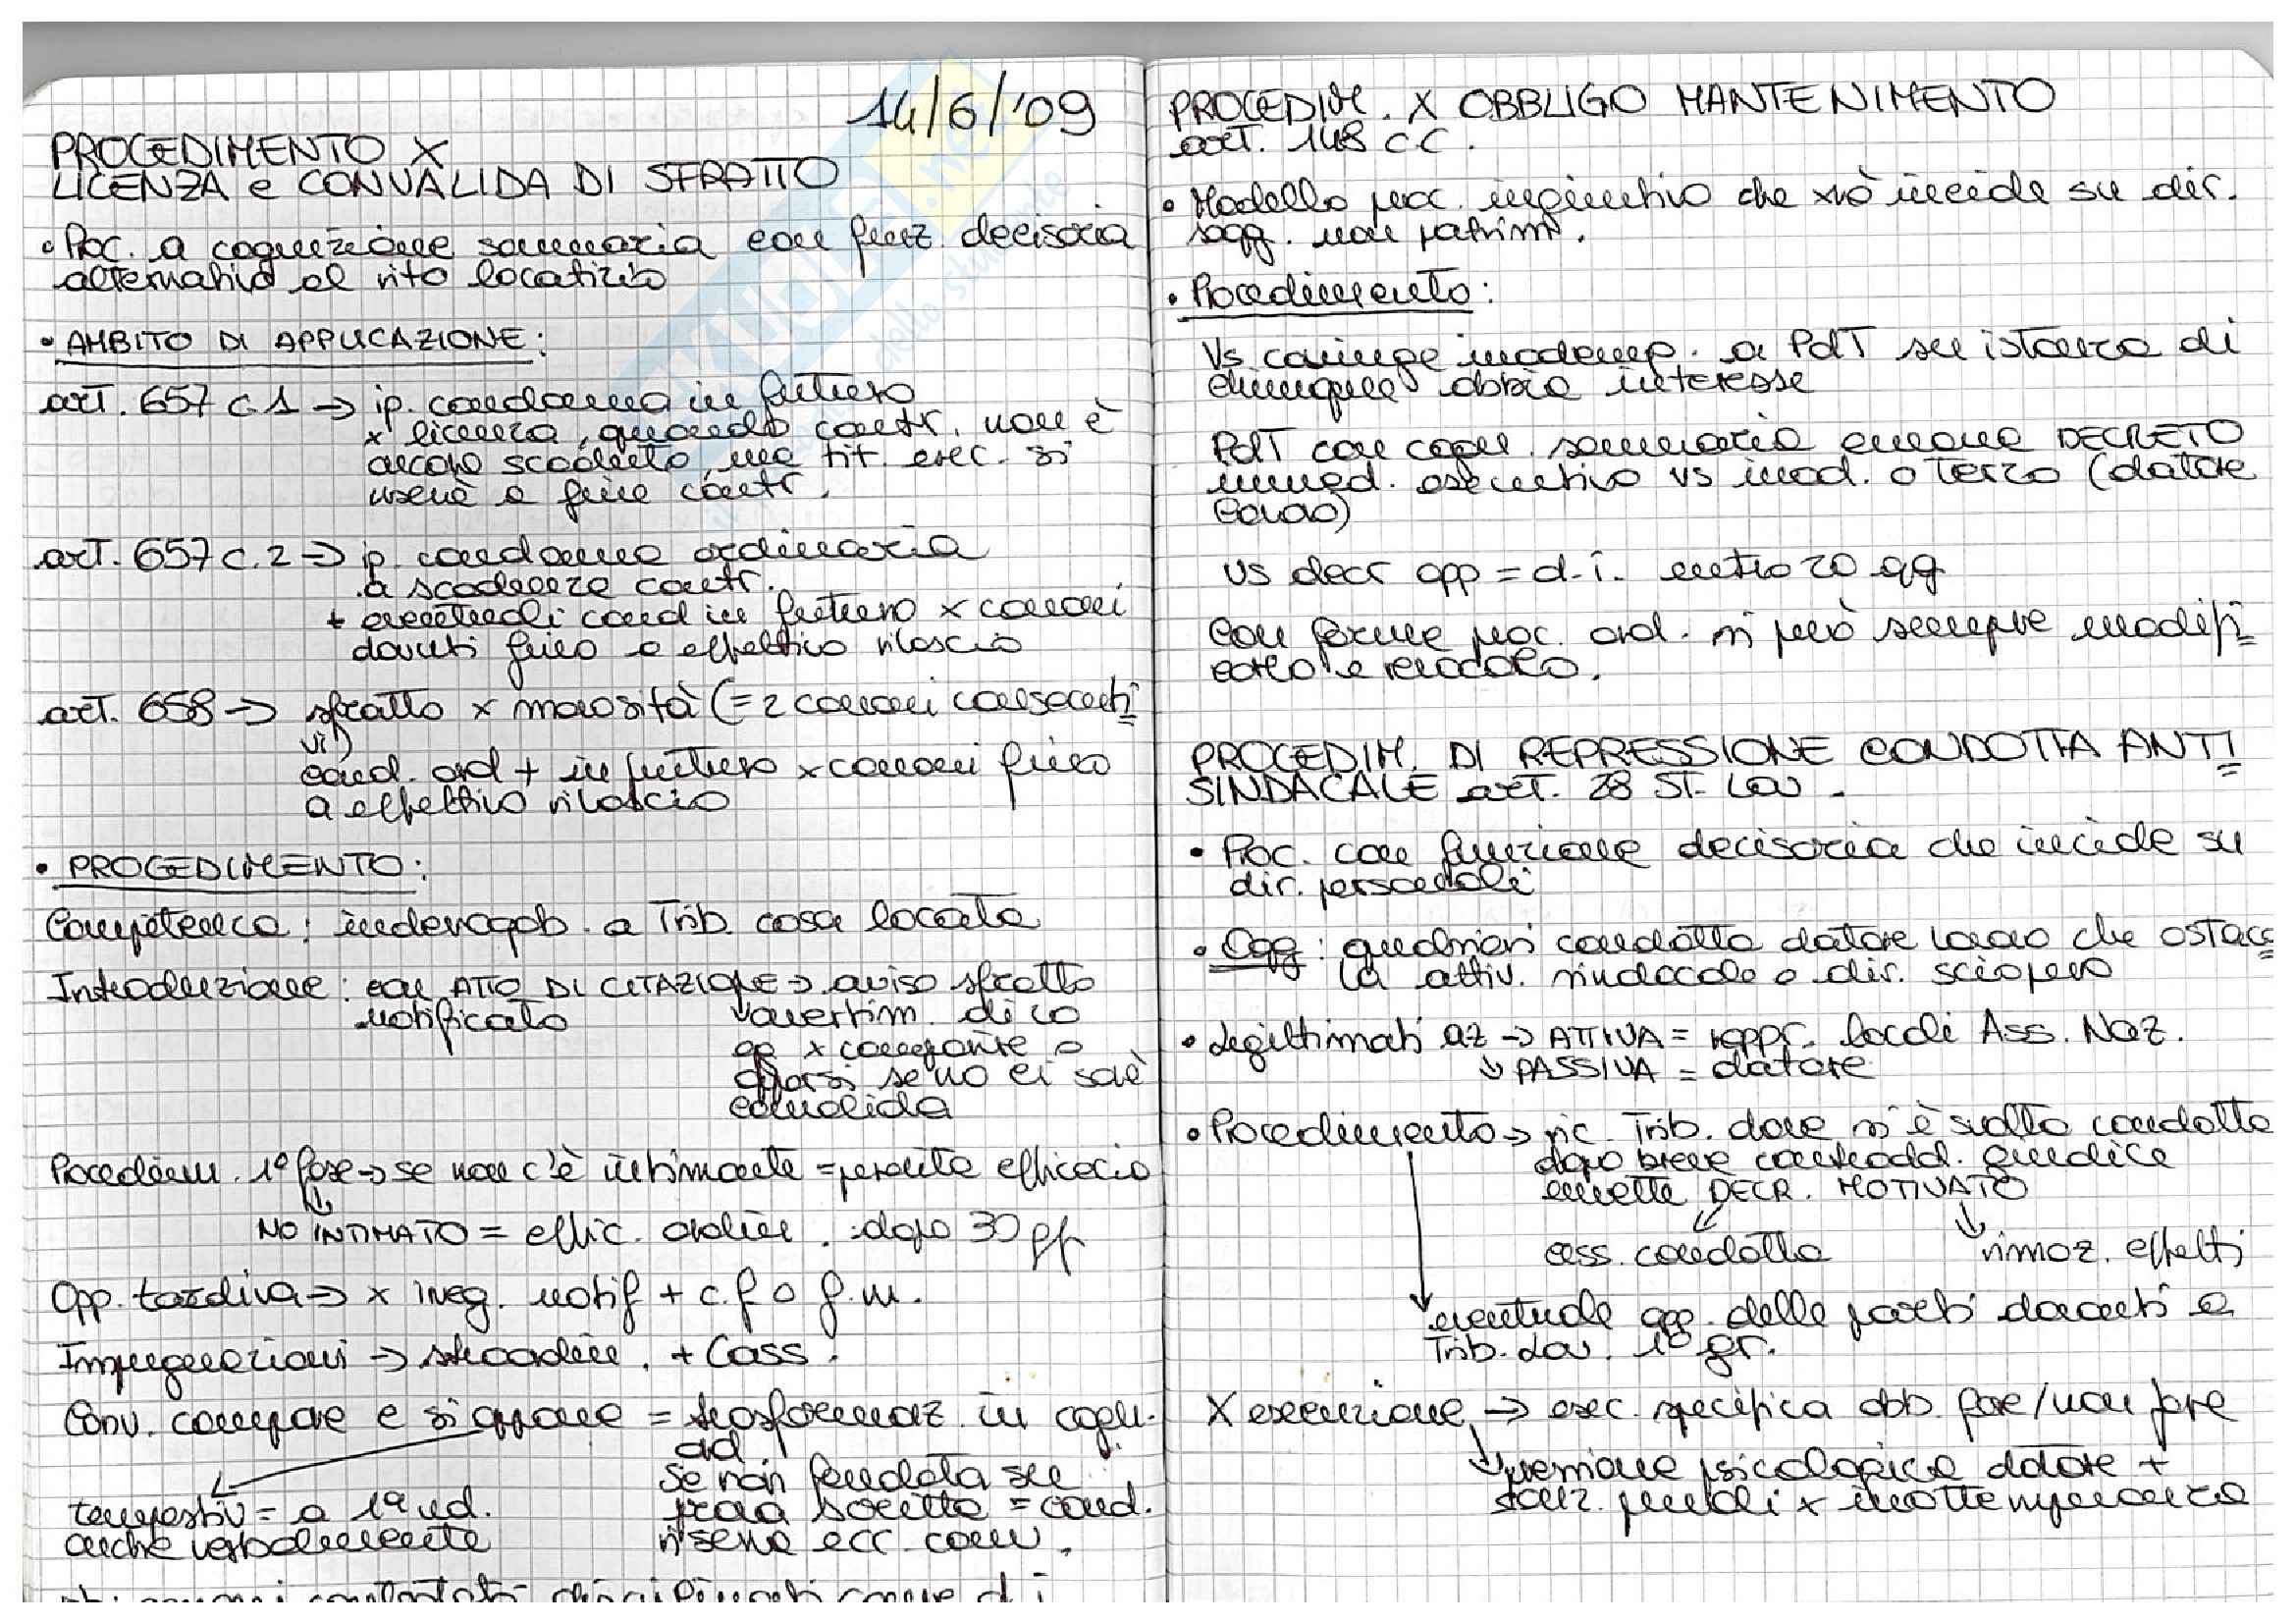 14/6/'09
PROCEDIMENTO X
LICENZA e CONVALIDA DI SFRATTO
• Proc. a cognizione sommaria con funz. decisoria
alternativo al rito locatizio
• AMBITO DI APPLICAZIONE:
art. 657 c.1 → ip. condanna in futuro
x licenza, quando contr. non è
ancora scaduto, ma tit. esec. si
userà a fine contr.
art. 657 c.2 → ip. condanna ordinaria
a scadenza contr.
+ eventuali cond in futuro x canoni
dovuti fino a effettivo rilascio
art. 658 → sfratto x morosità (= 2 canoni consecuti
vi)
cond. ord + in futuro x canoni fino
a effettivo rilascio
• PROCEDIMENTO:
Competenza: inderogab. a Trib. cosa locata
Introduzione: con ATTO DI CITAZIONE → avviso sfratto
notificato ↘ avvertim. di co
x comparire o
opporsi se no ci sarà
convalida
Procedim. 1° fase → se non c'è intimante = perdita efficacia
↓
NO INTIMATO = effic. ordin. dopo 30 gg
Opp. tardiva → x irreg. notif + c.f o f.m.
Impugnazioni → straordin. + Cass.
Conv. compare e si oppone = trasformaz. in cogn.
ord
tempestiv = a 1ª ud.
anche verbalmente
se non fondata su
prova scritta = cond.
riserva ecc. conv.
PROCEDIM. X OBBLIGO MANTENIMENTO
art. 148 c.c.
• Modello proc. ingiuntivo che xrò incide su dir.
sogg. non patrim.
• Procedimento:
Vs coniuge inadempi. a PdT su istanza di
chiunque abbia interesse
PdT con cogn. sommaria emana DECRETO
immed. esecutivo vs inad. o terzo (datore
lavoro)
vs decr opp = d.i. entro 20 gg
Con forme proc. ord. si può sempre modifi
carlo e revocarlo.
PROCEDIM. DI REPRESSIONE CONDOTTA ANTI
SINDACALE art. 28 ST. LAV.
• Proc. con funzione decisoria che incide su
dir. personali
• Ogg: qualsiasi condotta datore lavoro che ostaco
la attiv. sindacale o dir. sciopero
• Legittimati az → ATTIVA = rappr. locali Ass. Naz.
↘ PASSIVA = datore
• Procedimento → ric. Trib. dove si è svolta condotta
dopo breve contradd. giudice
emette DECR. MOTIVATO
↙ ↘
cess. condotta rimoz. effetti
↓ eventuale opp. delle parti davanti a
Trib. Lav. 1° gr.
X esecuzione → esec. specifica obb. fare/non fare
↘ pressione psicologica datore +
sanz. penali x inottemperanza